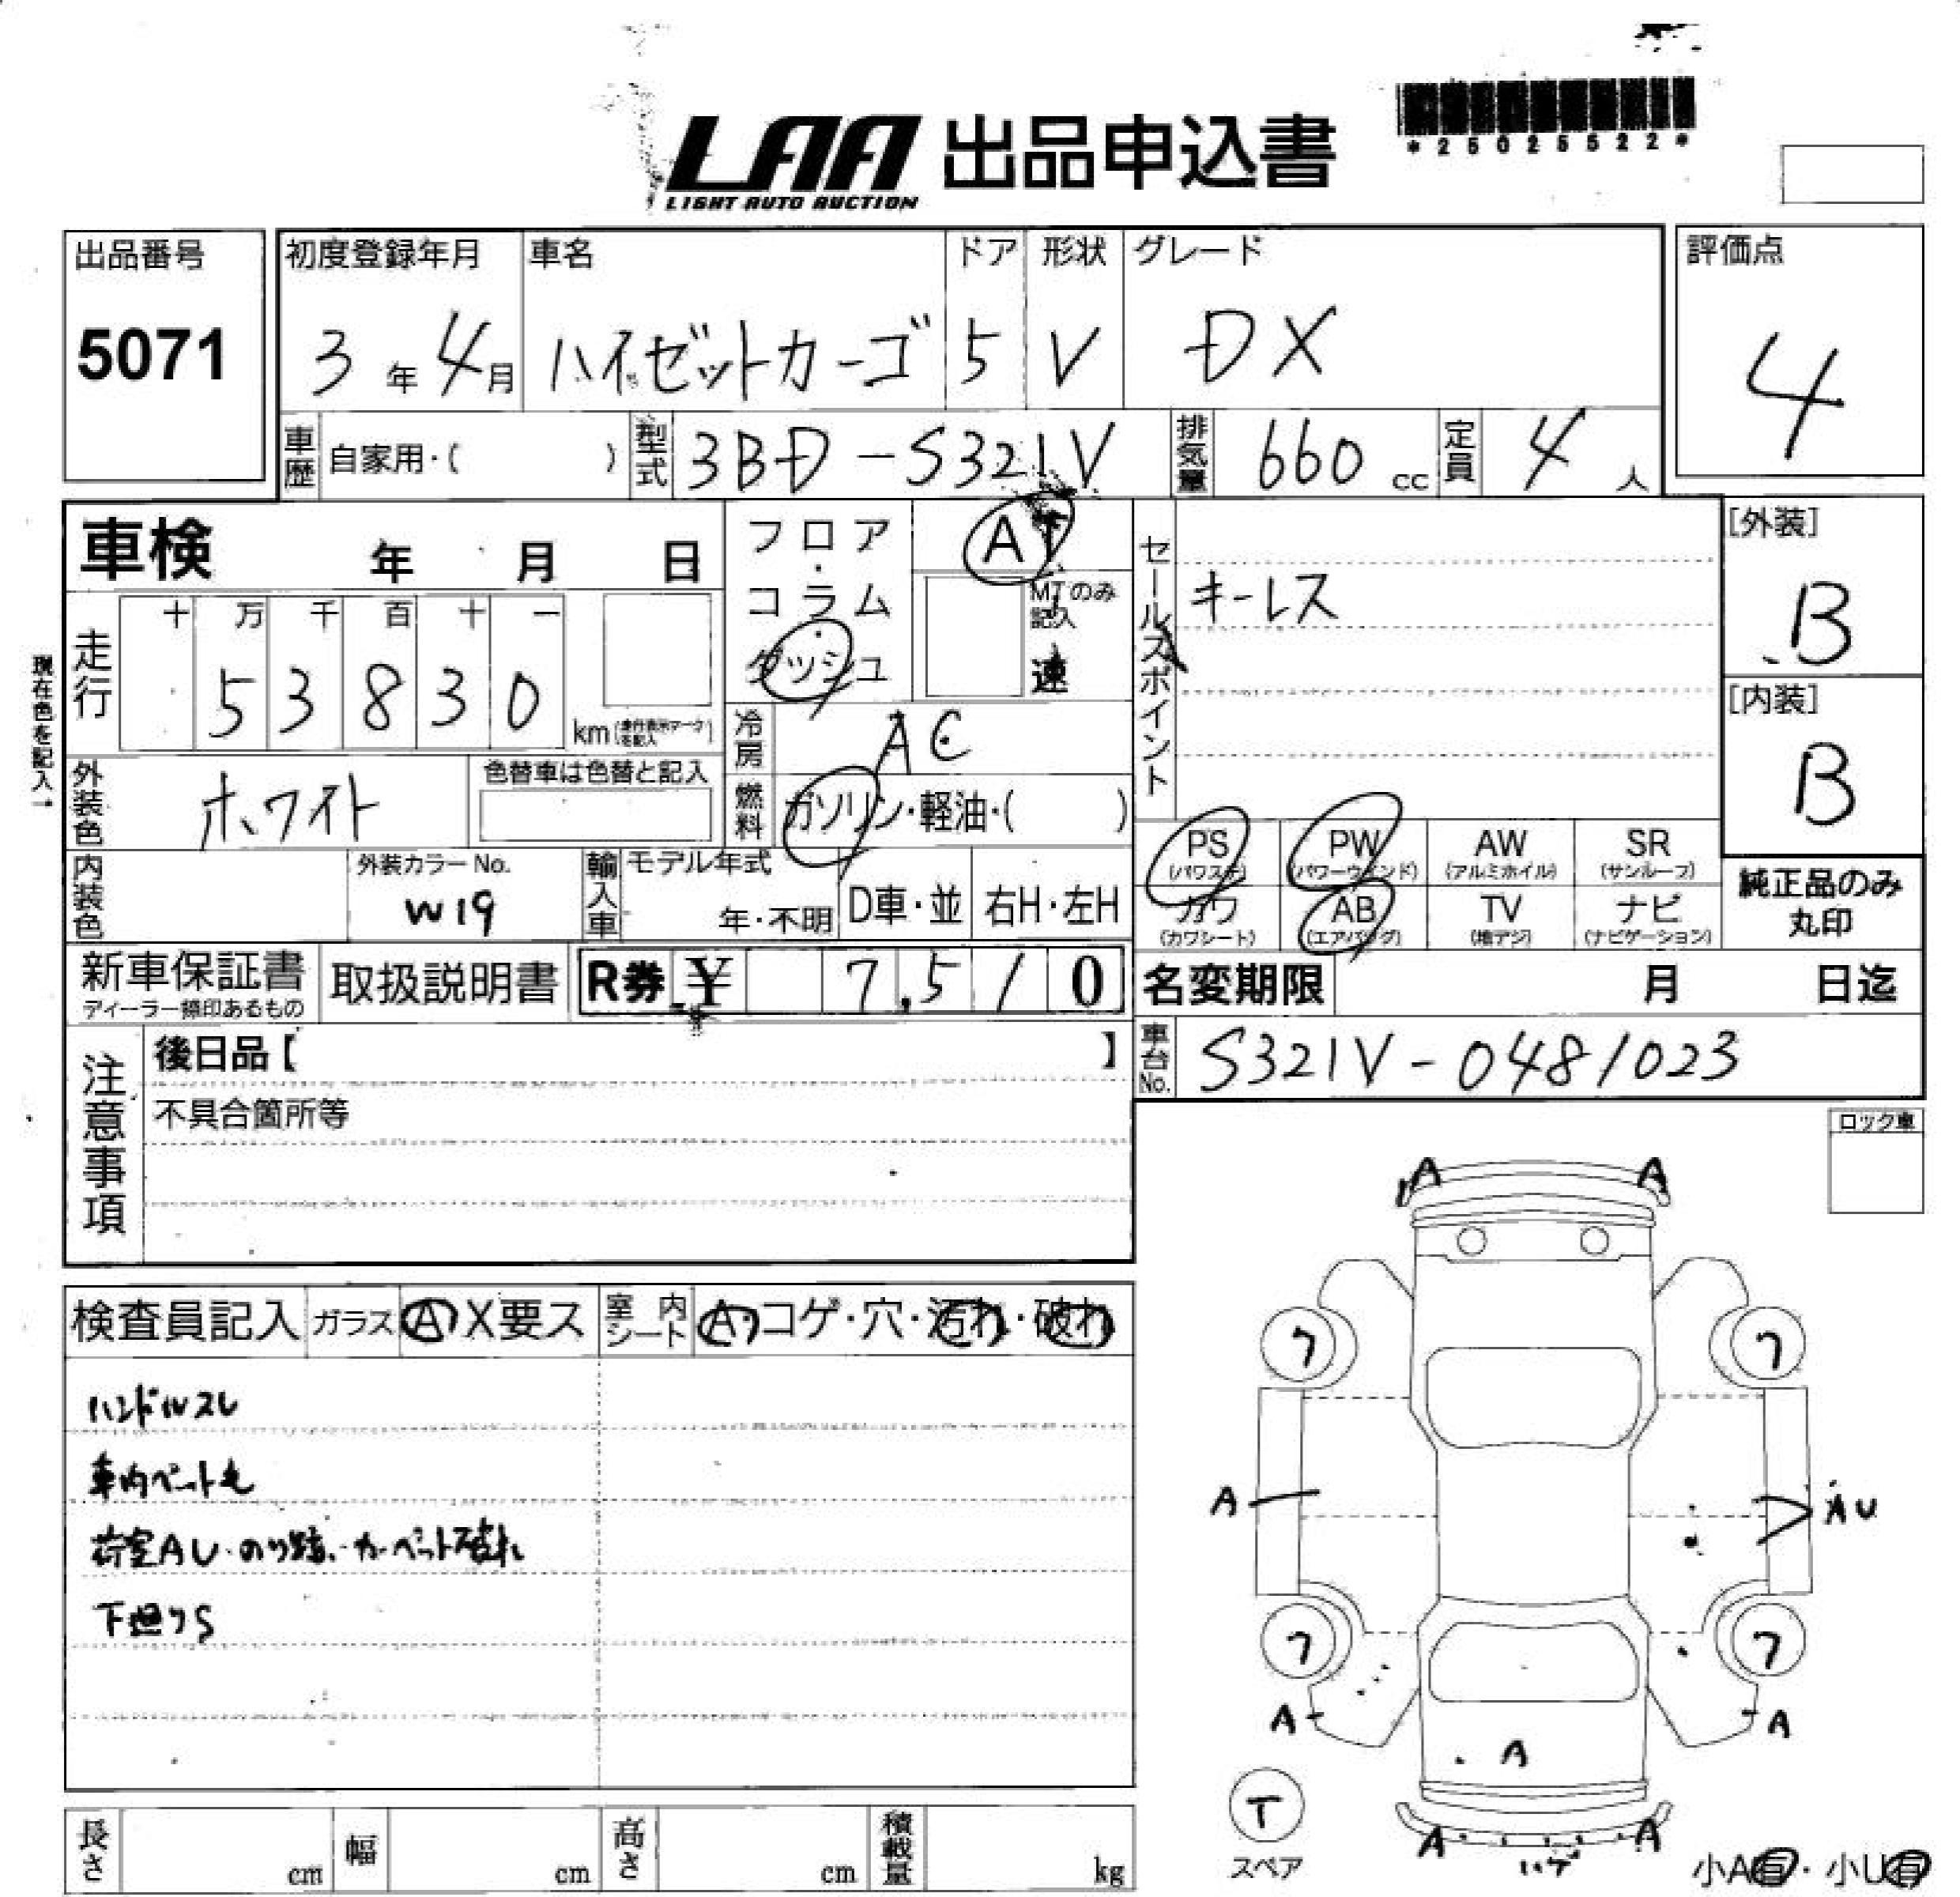 LAA 出品申込書
LIGHT AUTO AUCTION
*25025522*
出品番号 初度登録年月 車名 ドア 形状 グレード 評価点
5071 3年4月 ハイゼットカーゴ 5 V DX 4
車歴 自家用・( ) 型式 3BD-S321V 排気量 660cc 定員 4人
車検 年 月 日
フロア・コラム・ダッシュ
AT
MTのみ記入
速
セールスポイント
キーレス
[外装]
B
[内装]
B
現在色を記入→
走行 十 万 千 百 十 一
5 3 8 3 0 km
冷房 AC
外装色 ホワイト 色替車は色替と記入
燃料 ガソリン・軽油・( )
PS (パワステ) PW (パワーウインド) AW (アルミホイル) SR (サンルーフ)
カワ (カワシート) AB (エアバッグ) TV (地デジ) ナビ (ナビゲーション)
純正品のみ
丸印
内装色 外装カラーNo. W19
輸入車 モデル年式 年・不明 D車・並 右H・左H
新車保証書 取扱説明書 R券 ¥ 7,510
ディーラー捺印あるもの
名変期限 月 日迄
車台No. S321V-0481023
注意事項
後日品【 】
不具合箇所等
ロック車
検査員記入 ガラス A X要ス 室内シート A・コゲ・穴・汚れ・破れ
ハンドルスレ
車内ペット毛
荷室AU・のり跡、カーペット破れ
下廻りS
A A
7 7
A AU
7 7
A A
A
T
スペア
A A
ハゲ
小A有・小U有
長さ cm 幅 cm 高さ cm 積載量 kg